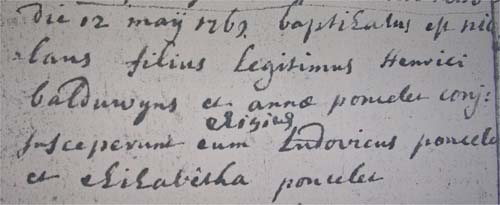 die 12 maÿ 1769 baptizatus est nic
laus filius legitimus Henrici
balduwyns et annæ poncelet conj:
Eligius
susceperunt eum Ludovicus poncele
et Elizabêtha poncelet